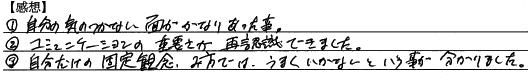 【感想】
① 自分の気のつかない面がかなりあった事。
② コミュニケーションの重要さが再認識できました。
③ 自分だけの固定観念、み方では、うまくいかないという事が分かりました。